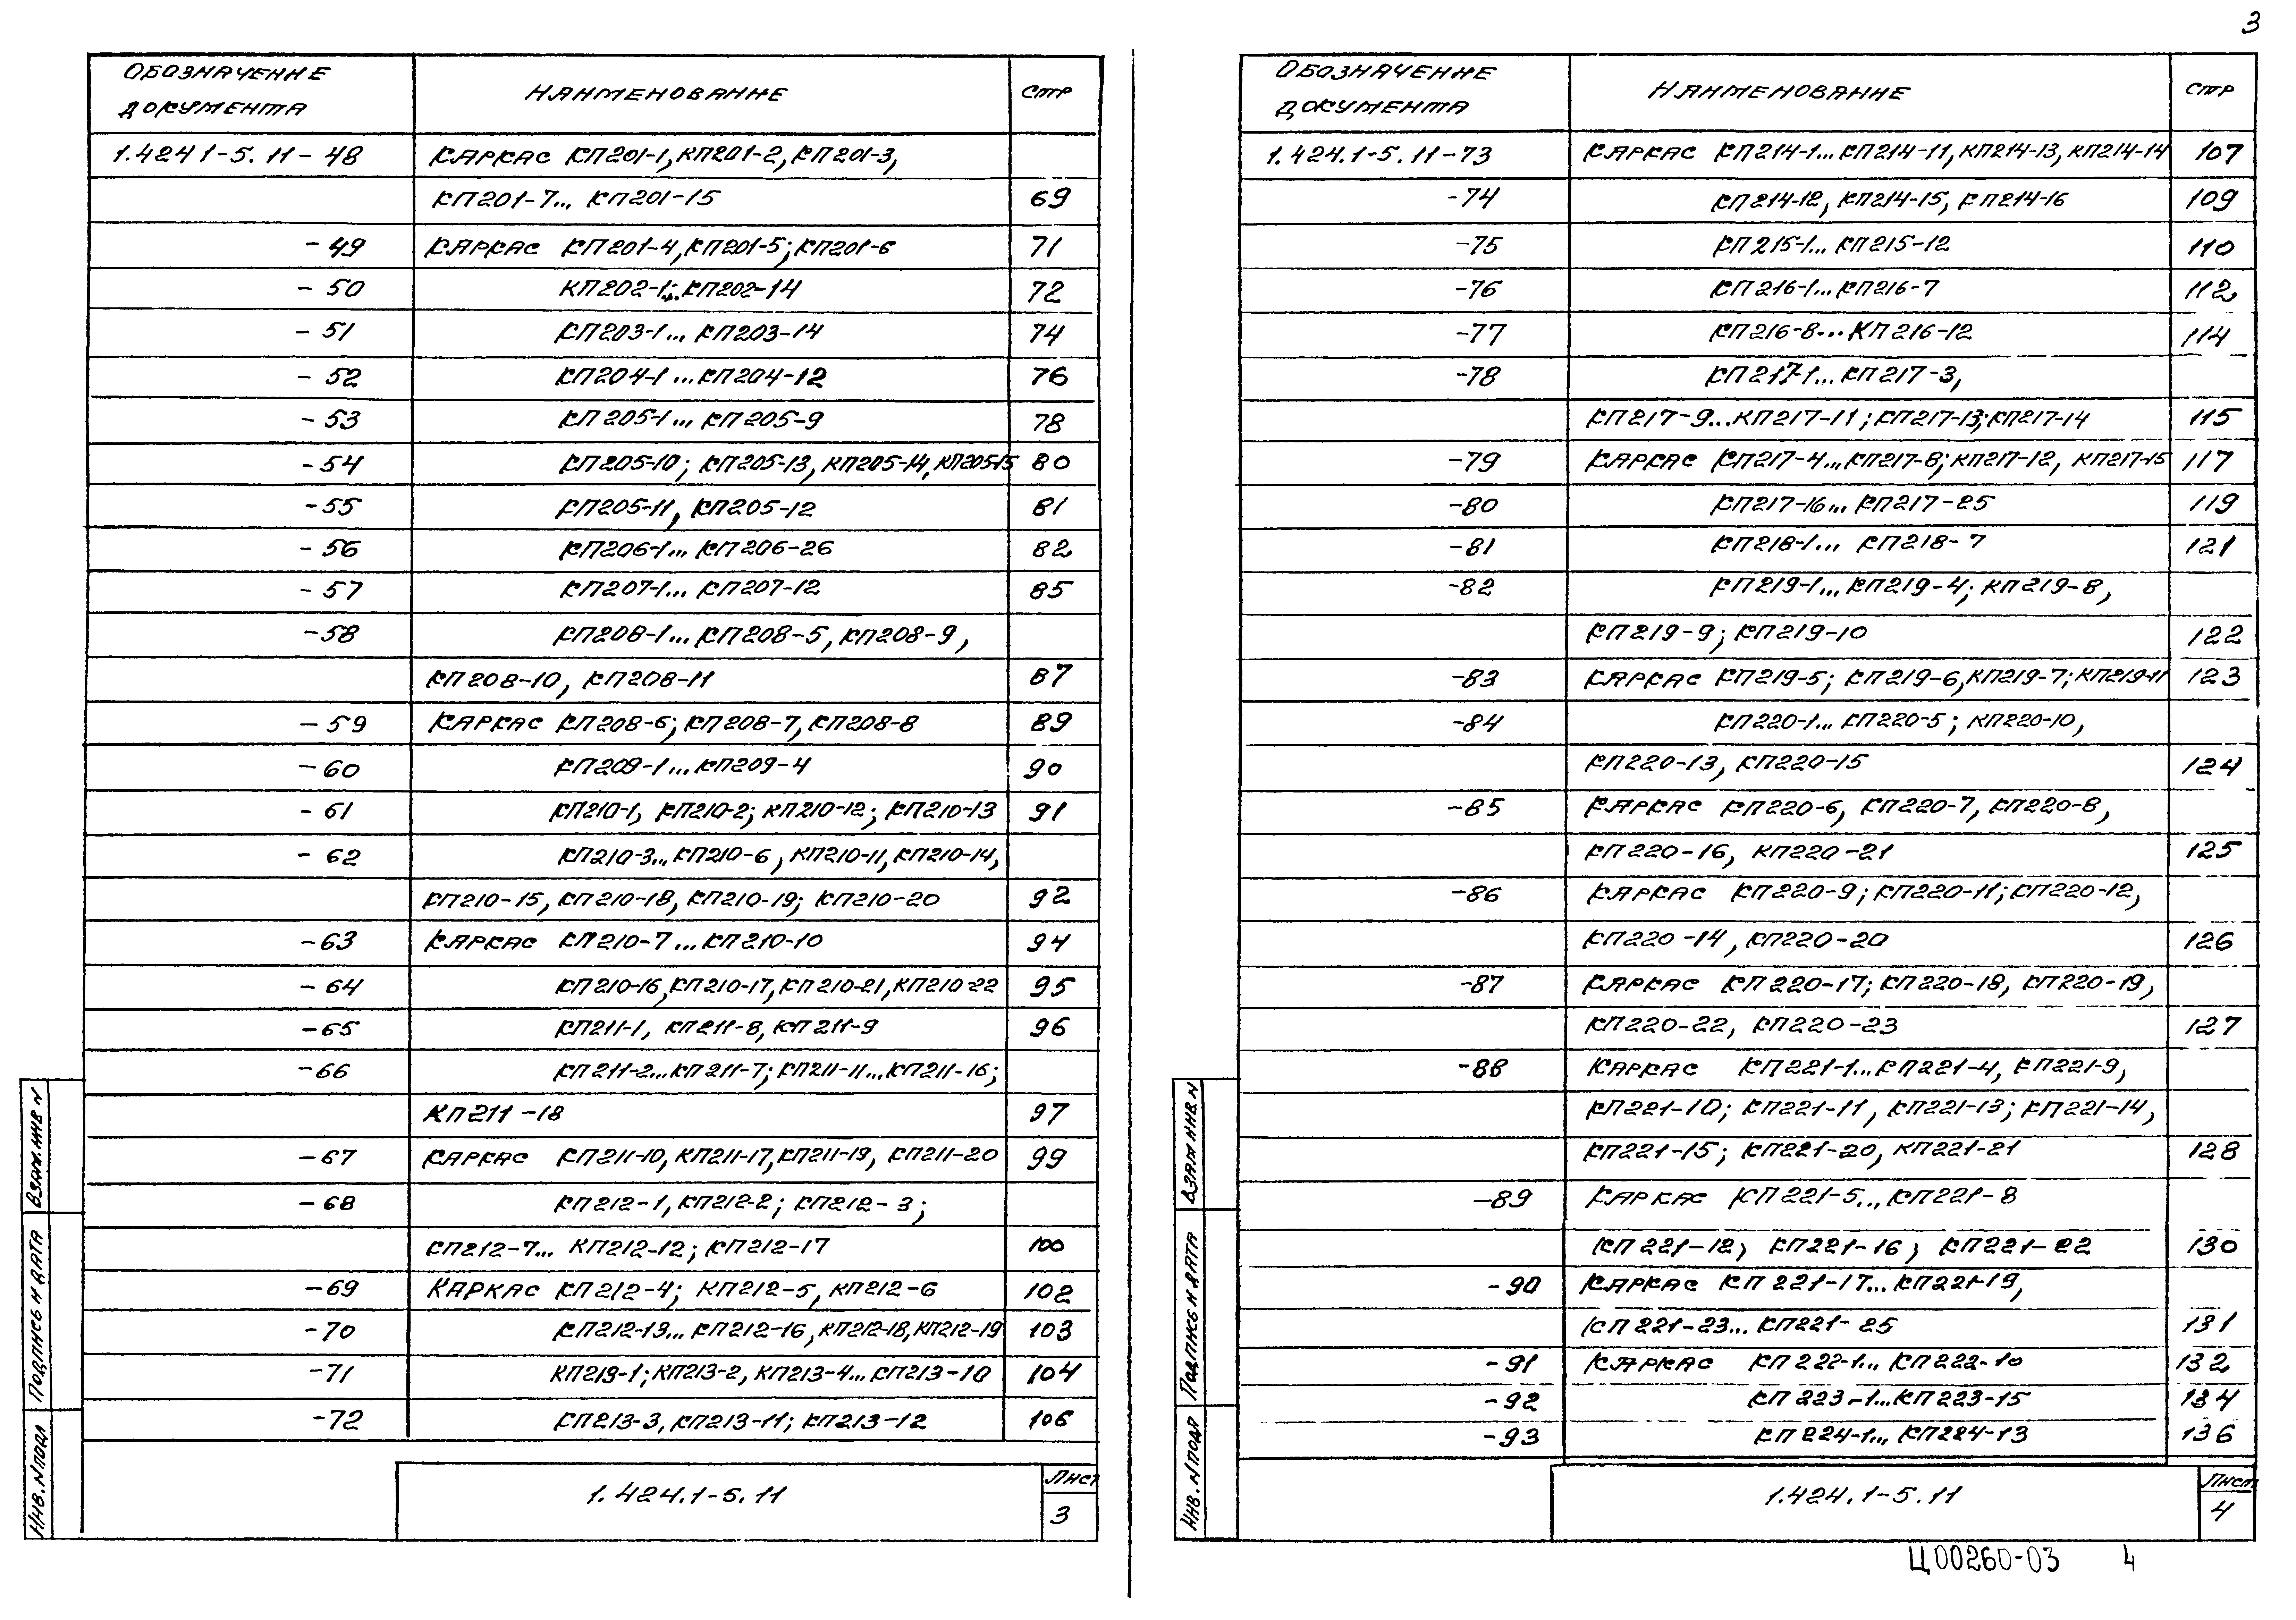 3
ОБОЗНАЧЕНИЕ ДОКУМЕНТА НАИМЕНОВАНИЕ СТР
1.424 1-5. 11 - 48 КАРКАС КП201-1, КП201-2, КП201-3,
КП201-7... КП201-15 69
- 49 КАРКАС КП201-4, КП201-5; КП201-6 71
- 50 КП202-1... КП202-14 72
- 51 КП203-1... КП203-14 74
- 52 КП204-1 ...КП204-12 76
- 53 КП205-1... КП205-9 78
- 54 КП205-10; КП205-13, КП205-14, КП205-15 80
- 55 КП205-11, КП205-12 81
- 56 КП206-1... КП206-26 82
- 57 КП207-1... КП207-12 85
- 58 КП208-1... КП208-5, КП208-9,
КП208-10, КП208-11 87
- 59 КАРКАС КП208-6; КП208-7, КП208-8 89
- 60 КП209-1...КП209-4 90
- 61 КП210-1, КП210-2; КП210-12; КП210-13 91
- 62 КП210-3...КП210-6, КП210-11, КП210-14,
КП210-15, КП210-18, КП210-19; КП210-20 92
- 63 КАРКАС КП210-7...КП210-10 94
- 64 КП210-16, КП210-17, КП210-21, КП210-22 95
- 65 КП211-1, КП211-8, КП211-9 96
- 66 КП211-2...КП211-7; КП211-11...КП211-16;
КП211-18 97
- 67 КАРКАС КП211-10, КП211-17, КП211-19, КП211-20 99
- 68 КП212-1, КП212-2; КП212-3;
КП212-7... КП212-12; КП212-17 100
- 69 КАРКАС КП212-4; КП212-5, КП212-6 102
- 70 КП212-13... КП212-16, КП212-18, КП212-19 103
- 71 КП213-1; КП213-2, КП213-4... КП213-10 104
- 72 КП213-3, КП213-11; КП213-12 106
1.424.1-5.11
ЛИСТ
3
ВЗАМ.ИНВ N
ПОДПИСЬ И ДАТА
ИНВ. N ПОДЛ
ОБОЗНАЧЕНИЕ ДОКУМЕНТА НАИМЕНОВАНИЕ СТР
1.424.1-5.11-73 КАРКАС КП214-1...КП214-11, КП214-13, КП214-14 107
-74 КП214-12, КП214-15, КП214-16 109
-75 КП215-1... КП215-12 110
-76 КП216-1...КП216-7 112
-77 КП216-8...КП216-12 114
-78 КП217-1...КП217-3,
КП217-9...КП217-11; КП217-13; КП217-14 115
-79 КАРКАС КП217-4...КП217-8; КП217-12, КП217-15 117
-80 КП217-16... КП217-25 119
-81 КП218-1... КП218-7 121
-82 КП219-1...КП219-4; КП219-8,
КП219-9; КП219-10 122
-83 КАРКАС КП219-5; КП219-6, КП219-7; КП219-11 123
-84 КП220-1... КП220-5; КП220-10,
КП220-13, КП220-15 124
-85 КАРКАС КП220-6, КП220-7, КП220-8,
КП220-16, КП220-21 125
-86 КАРКАС КП220-9; КП220-11; КП220-12,
КП220-14, КП220-20 126
-87 КАРКАС КП220-17; КП220-18, КП220-19,
КП220-22, КП220-23 127
-88 КАРКАС КП221-1...КП221-4, КП221-9,
КП221-10; КП221-11, КП221-13; КП221-14,
КП221-15; КП221-20, КП221-21 128
-89 КАРКАС КП221-5... КП221-8
КП221-12, КП221-16, КП221-22 130
-90 КАРКАС КП221-17...КП221-19,
КП221-23... КП221-25 131
-91 КАРКАС КП222-1... КП222-10 132
-92 КП223-1...КП223-15 134
-93 КП224-1... КП224-13 136
1.424.1-5.11
ЛИСТ
4
ВЗАМ ИНВ N
ПОДПИСЬ И ДАТА
ИНВ. N ПОДЛ
Ц00260-03 4